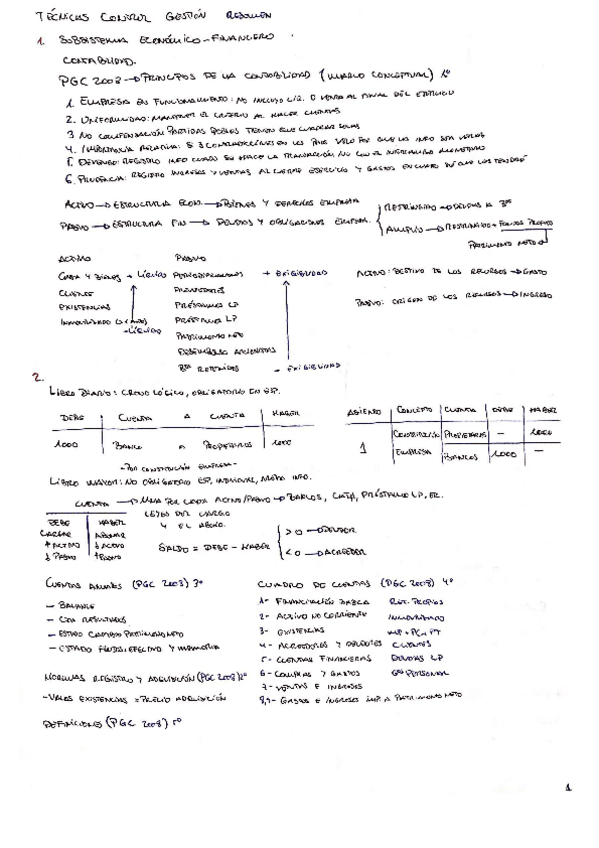 TÉCNICAS CONTROL GESTIÓN RESUMEN
1. SUBSISTEMA ECONÓMICO-FINANCIERO
CONTABILIDAD.
PGC 2008 → PRINCIPIOS DE LA CONTABILIDAD (MARCO CONCEPTUAL) 1º
1. EMPRESA EN FUNCIONAMIENTO: NO INCLUYO LIQ. O VENTA AL FINAL DEL EJERCICIO
2. UNIFORMIDAD: MANTENER EL CRITERIO AL HACER CUENTAS
3 NO COMPENSACIÓN PARTIDAS DOBLES TIENEN QUE CUADRAR
4. IMPORTANCIA RELATIVA:
5. DEVENGO: REGISTRO INFO CUANDO SE HACE LA TRANSACCIÓN, NO CON EL INTERCAMBIO MONETARIO
6. PRUDENCIA: REGISTRO INGRESOS Y VENTAS AL CIERRE EJERCICIO Y GASTOS EN CUANTO SÉ QUE LOS TENDRÉ
ACTIVO → ESTRUCTURA ECON → BIENES Y DERECHOS EMPRESA
PASIVO → ESTRUCTURA FIN → DEUDAS Y OBLIGACIONES EMPRESA.
RESTRINGIDO → DEUDAS A 3ºS
AMPLIO → RESTRINGIDO + FONDOS PROPIOS
PATRIMONIO NETO
ACTIVO PASIVO
CAJA Y BANCOS + LÍQUIDO + EXIGIBILIDAD
CLIENTES PROVEEDORES
EXISTENCIAS PRÉSTAMO
INMOVILIZADO - LÍQUIDO PRÉSTAMO LP
PATRIMONIO NETO
DESEMBOLSO ACCIONISTAS
Bº RETENIDOS - EXIGIBILIDAD
ACTIVO: DESTINO DE LOS RECURSOS → GASTO
PASIVO: ORIGEN DE LOS RECURSOS → INGRESO
2.
LIBRO DIARIO: CRONOLÓGICO, OBLIGATORIO EN ESP.
DEBE CUENTA A CUENTA HABER
1000 BANCO A PROPIETARIOS 1000
-POR CONSTITUCIÓN EMPRESA-
ASIENTO CONCEPTO CUENTA DEBE HABER
1 CONSTITUCIÓN PROPIETARIOS — 1000
EMPRESA BANCOS 1000 —
LIBRO MAYOR: NO OBLIGATORIO ESP, INDIVIDUAL, MISMA INFO.
CUENTA → UNA POR CADA ACTIVO/PASIVO → BANCOS, CAJA, PRÉSTAMO LP, ETC.
DEBE HABER
CARGAR ABONAR
↑ ACTIVO ↓ ACTIVO
↓ PASIVO ↑ PASIVO
LEYES DEL CARGO
Y EL ABONO.
SALDO = DEBE - HABER
> 0 → DEUDOR
< 0 → ACREEDOR
CUENTAS ANUALES (PGC 2008) 3º
- BALANCE
- CTA RESULTADOS
- ESTADO CAMBIO PATRIMONIO NETO
- ESTADO FLUJOS EFECTIVO Y MEMORIA
NORMAS REGISTRO Y ADQUISICIÓN (PGC 2008) 2º
- VALOR EXISTENCIAS = PRECIO ADQUISICIÓN
DEFINICIONES (PGC 2008) 5º
CUADRO DE CUENTAS (PGC 2008) 4º
1- FINANCIACIÓN BÁSICA REC. PROPIOS
2- ACTIVO NO CORRIENTE INMOVILIZADO
3- EXISTENCIAS MP + PC + PT
4- ACREEDORES Y DEUDORES CLIENTES
5- CUENTAS FINANCIERAS DEUDAS LP
6- COMPRAS Y GASTOS PERSONAL
7- VENTAS E INGRESOS
8,9- GASTOS E INGRESOS IMP. A PATRIMONIO NETO
1